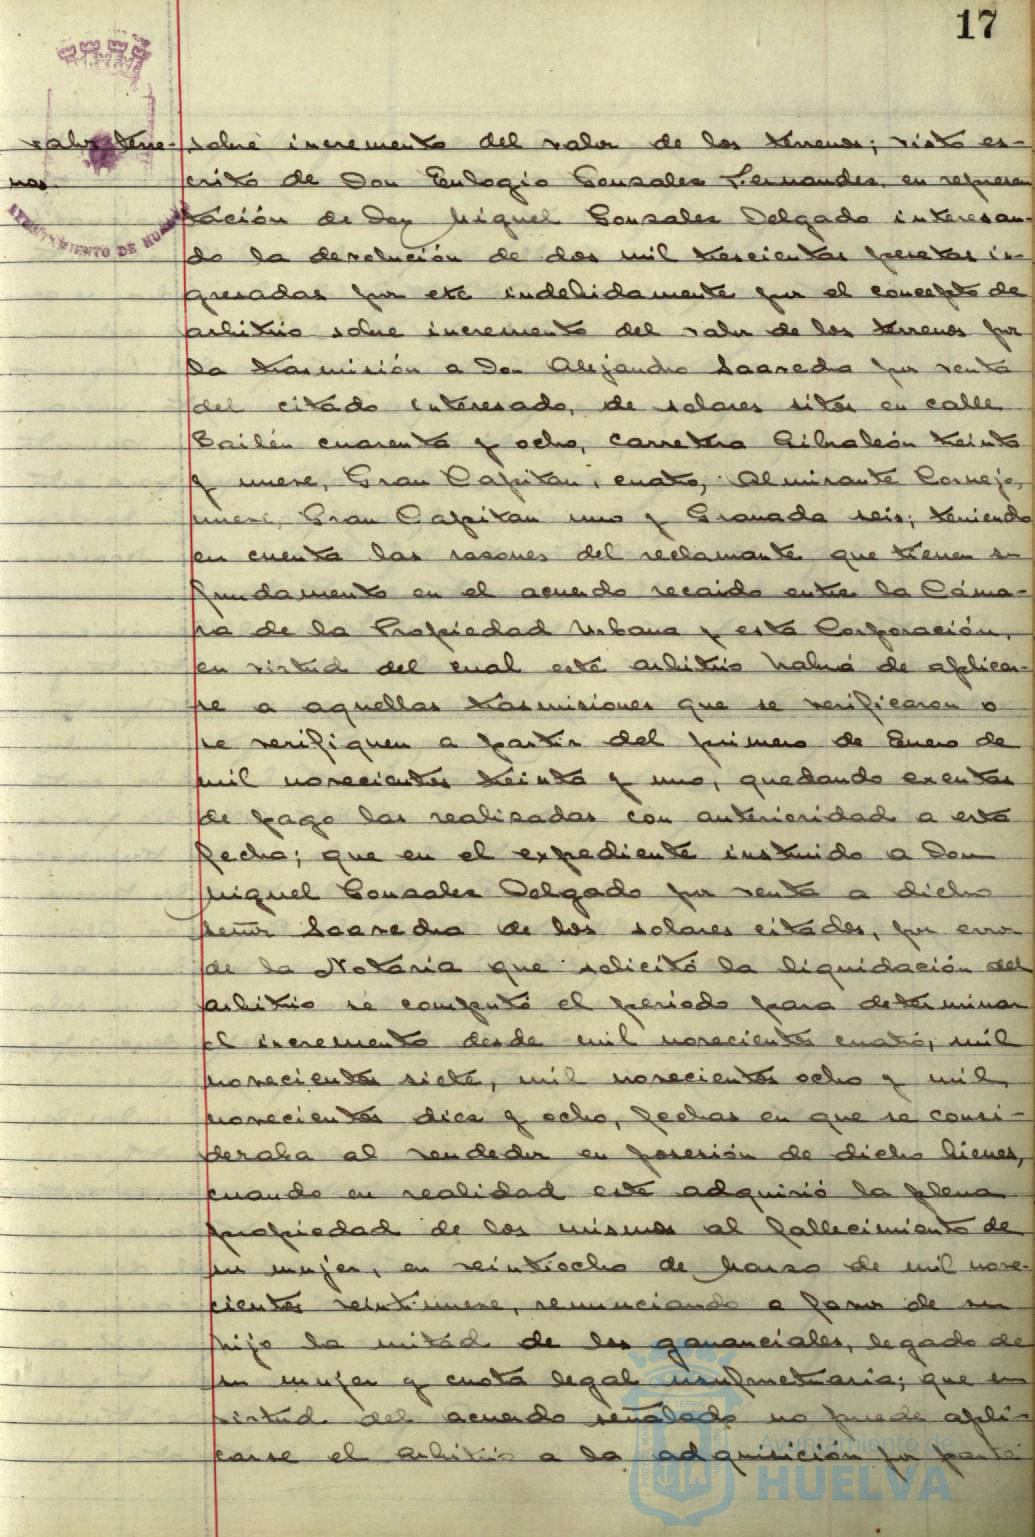 17
valor terre-
nos.
AYUNTAMIENTO DE HUELVA
sobre incremento del valor de los terrenos; visto es-
crito de Don Eulogio Gonzales Fernandez, en represen
tación de Don Miguel Gonzales Delgado interesan-
do la devolución de dos mil trescientas pesetas in-
gresadas por este indebidamente por el concepto de
arbitrio sobre incremento del valor de los terrenos por
la trasmisión a Don Alejandro Saavedra por venta
del citado interesado, de solares sitos en calle
Bailén cuarenta y ocho, carretera Gibraleón treinta
y nueve, Gran Capitan, cuatro, Almirante Cornejo,
nueve, Gran Capitan uno y Granada seis; teniendo
en cuenta las razones del reclamante que tienen su
fundamento en el acuerdo recaido entre la Cáma-
ra de la Propiedad Urbana y esta Corporación,
en virtud del cual este arbitrio habrá de aplicar-
se a aquellas trasmisiones que se verificaron o
se verifiquen a partir del primero de Enero de
mil novecientos treinta y uno, quedando exentas
de pago las realizadas con anterioridad a esta
fecha; que en el expediente instruido a Don
Miguel Gonzales Delgado por venta a dicho
señor Saavedra de los solares citados, por error
de la Notaria que solicitó la liquidación del
arbitrio se computó el periodo para determinar
el incremento desde mil novecientos cuatro, mil
novecientos siete, mil novecientos ocho y mil
novecientos diez y ocho, fechas en que se consi-
deraba al vendedor en posesión de dicho bienes,
cuando en realidad este adquirió la plena
propiedad de los mismos al fallecimiento de
su mujer, en veintiocho de Marzo de mil nove-
cientos veintinueve, renunciando a favor de su
hijo la mitad de los gananciales, legado de
su mujer y cuota legal usufructuaria; que en
virtud del acuerdo señalado no puede apli-
carse el arbitrio a la adquisición por parte
Ayuntamiento de
HUELVA